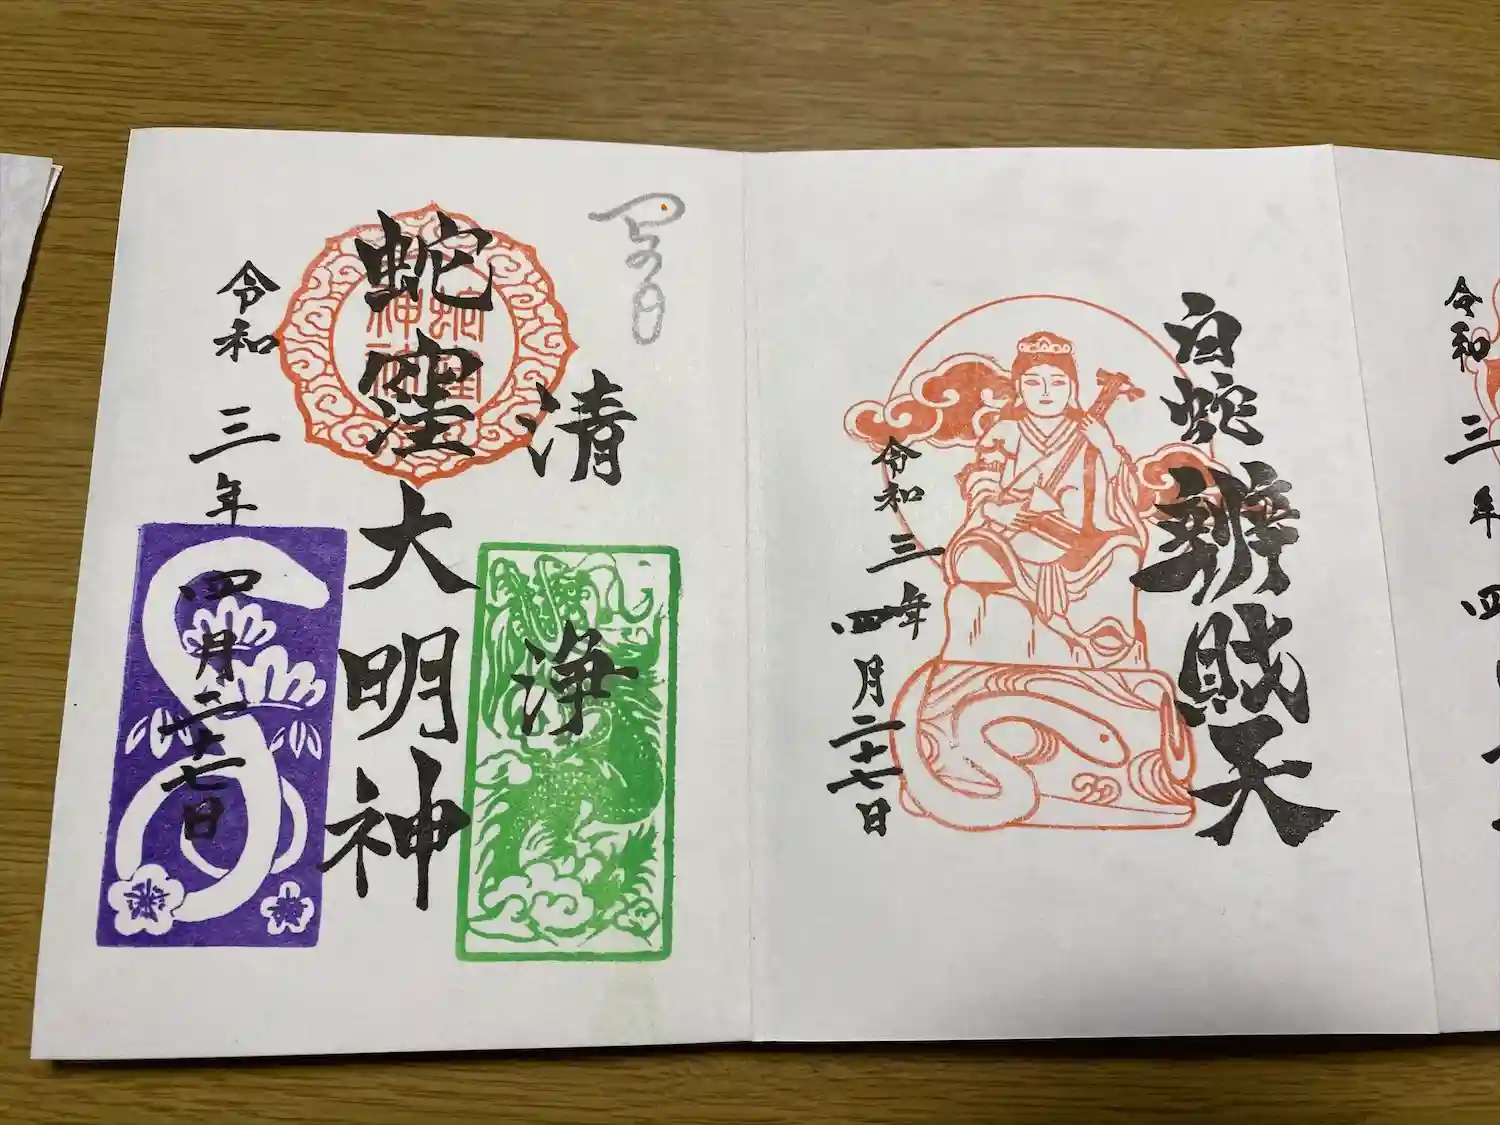 巳の日
清浄
蛇窪大明神
蛇窪神社
令和三年四月二十七日
白蛇辨財天
令和三年四月二十七日
令和三年四